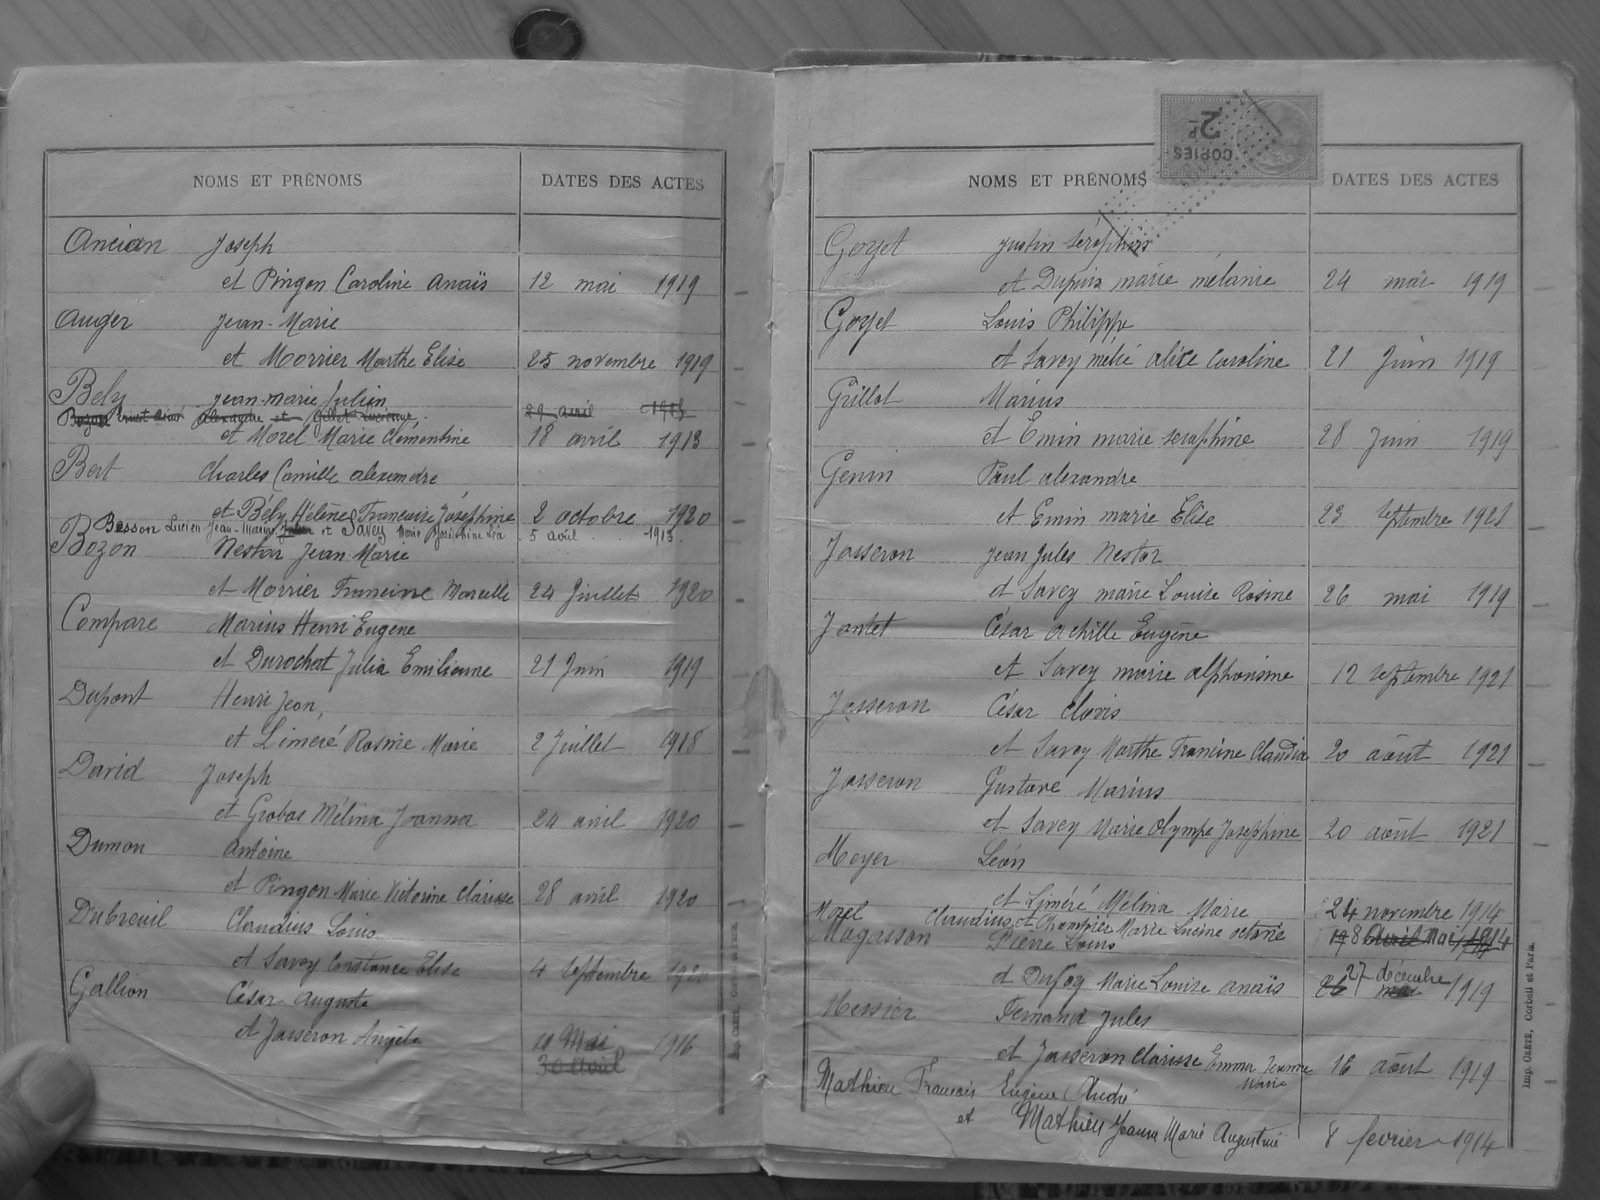 NOMS ET PRÉNOMS DATES DES ACTES
Ancian Joseph
et Pingon Caroline Anaïs 12 mai 1919
Auger Jean-Marie
et Morrier Marthe Elise 25 novembre 1919
Bely Jean-marie Julien
Bozon Alexandre et Gillet 29 avril 1913
et Morel Marie Clémentine 18 avril 1913
Bert Charles Camille alexandre
et Bély Hélène Françoise Joséphine 2 octobre 1920
Besson Lucien Jean-Marie et Savey Marie Joséphine Léa 5 avril 1913
Bozon Nestor Jean Marie
et Morrier Francine Marcelle 24 Juillet 1920
Compare Marius Henri Eugene
et Durochat Julia Emilienne 21 Juin 1919
Dupont Henri Jean,
et Liméré Rosine Marie 2 Juillet 1918
David Joseph
et Grobas Mélina Joanna 24 avril 1920
Dumon Antoine
et Pingon Marie Victorine Clarisse 28 avril 1920
Dubreuil Claudius Louis
et Savey Constance Elise 4 Septembre 1920
Gallion César Auguste
et Jasseron Angèle 10 Mai 1916
30 avril
Imp. CRÉTÉ, Corbeil et Paris.
COPIES
2
NOMS ET PRÉNOMS DATES DES ACTES
Goyet Justin Séraphin
et Dupuis marie mélanie 24 mai 1919
Goyet Louis Philippe
et Savey alice Caroline 21 Juin 1919
Grillot Marius
et Emin marie seraphine 28 Juin 1919
Genin Paul alexandre
et Emin marie Elise 23 Septembre 1921
Jasseron Jean Jules Nestor
et Savey marie Louise Rosine 26 mai 1919
Jantet César achille Eugène
et Savey marie alphonsine 12 Septembre 1921
Jasseron César Clovis
et Savey Marthe Francine Claudia 20 août 1921
Jasseron Gustave Marius
et Savey Marie Olympe Josephine 20 août 1921
Moyer Léon
et Liméré Mélina Marie 24 novembre 1914
Morel Claudius et Champier Marie Lucine octavie 8 Avril Mai 1914
Magasson Pierre Louis
et Dufoy Marie Louise anaïs 26 27 décembre mai 1919
Messier Fernand Jules
et Jasseron Clarisse Emma Jeanne Marie 16 août 1919
Mathieu François Eugène André
et Mathieu Jeanne Marie Augustine 8 février 1914
Imp. CRÉTÉ, Corbeil et Paris.